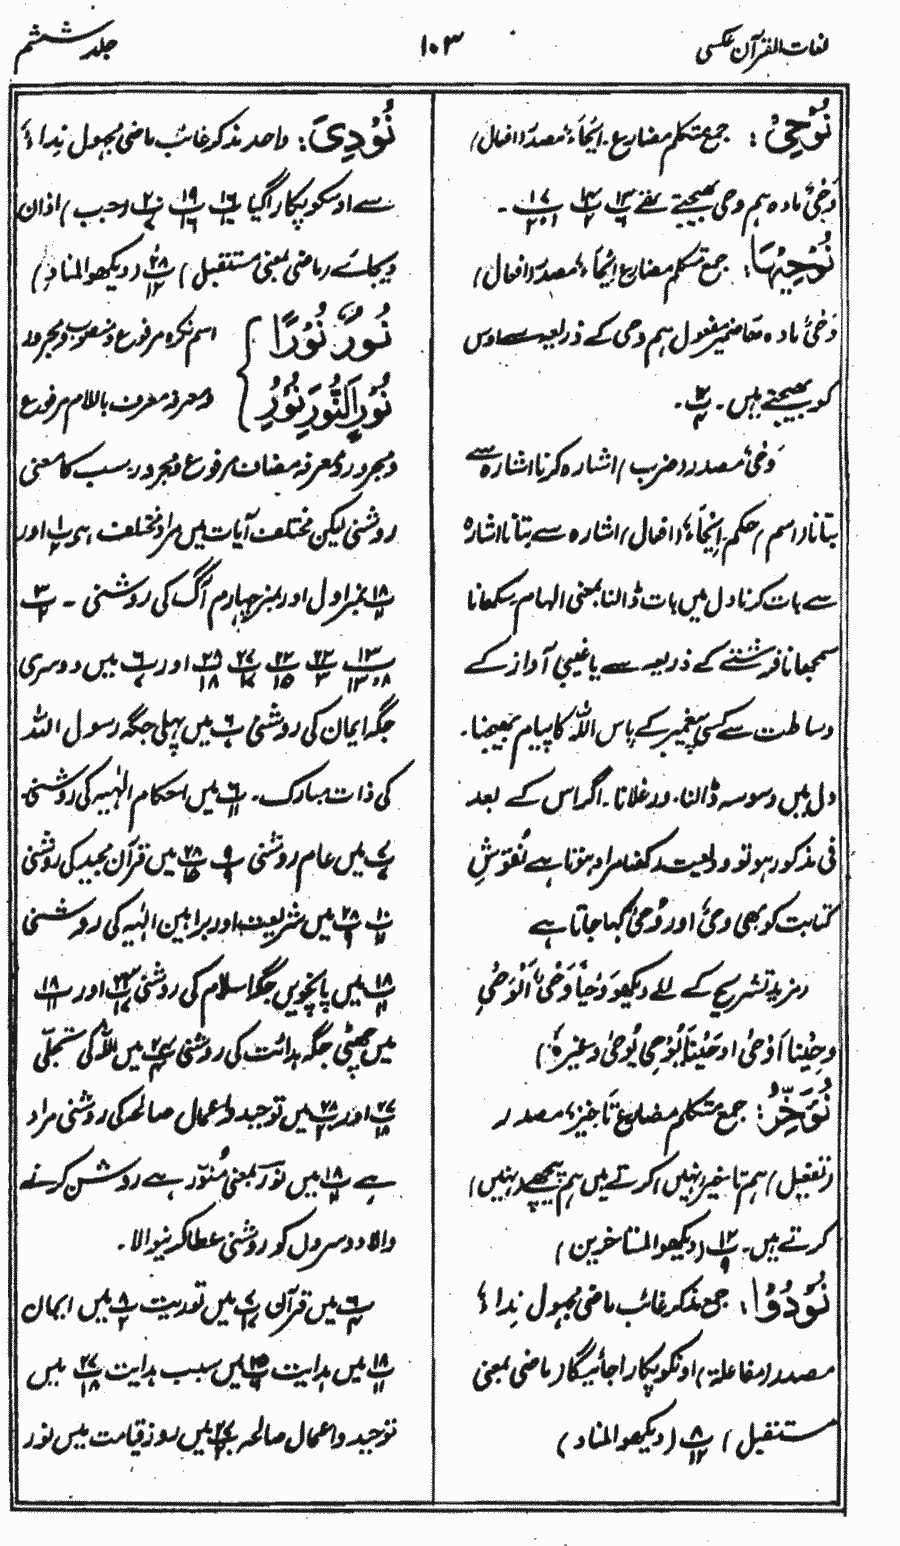 لغات القرآن عکسی
۱۰۳
جلد ششم
نُوْحِیْ: جمع متکلم مضارع۔ اِیْحَاءٌ مصدر (افعال)
وَحْیٌ مادہ ہم وحی بھیجتے تھے
نُوْحِیْہَا: جمع متکلم مضارع اِیْحَاءٌ مصدر (افعال)
وَحْیٌ مادہ ھا ضمیر مفعول ہم وحی کے ذریعہ سے اوس
کو بھیجتے ہیں۔
وَحْیٌ مصدر (ضرب) اشارہ کرنا اشارہ سے
بتانا (اسم) حکم۔ اِیْحَاءٌ (افعال) اشارہ سے بتانا اشارہ
سے بات کرنا دل میں بات ڈالنا بمعنی الہام سکھانا
سمجھانا فرشتے کے ذریعہ سے یا غیبی آواز کے
وساطت سے کسی پیغمبر کے پاس اللہ کا پیام بھیجنا۔
دل میں وسوسہ ڈالنا۔ ورغلانا۔ اگر اس کے بعد
فی مذکور ہو تو ودیعت رکھنا مراد ہوتا ہے نُقُوْشِ
کتابت کو بھی وحیٌ اور وُحِیٌّ کہا جاتا ہے
(مزید تشریح کے لئے دیکھو وَحْیًا وَحْیٌ اَلْوَحْیِ
وحینا اَوْحٰی اوحَیْنَا یُوْحِی یُوْحٰی وغیرہ)
نُؤَخِّرُ: جمع متکلم مضارع تَاخِیْرٌ مصدر
(تفعیل) ہم تاخیر (نہیں) کرتے ہیں ہم پیچھے (نہیں)
کرتے ہیں۔ ۱۲/۹ (دیکھو المتاخرین)
نُوْدُوْا: جمع مذکر غائب ماضی مجہول نِداءٌ
مصدر (مفاعلۃ) اونکو پکارا جائیگا (ماضی بمعنی
مستقبل) ۸/۱۲ (دیکھو المناد)
نُوْدِیَ: واحد مذکر غائب ماضی مجہول نِداءٌ
سے اوسکو پکارا گیا (جب) اذان
دیجائے (ماضی بمعنی مستقبل) ۲۸/۱۲ (دیکھو المناد)
نُوْرٌ۔ نُوْرًا اسم نکرہ مرفوع ومنصوب ومجرور
نُوْرٍ اَلنُّوْرَ نُوْرِ ومعرفہ معرف باللام مرفوع
ومجرور ومعرفہ مضاف مرفوع ومجرور۔ سب کا معنی
روشنی لیکن مختلف آیات میں مراد مختلف ہے اور
۱۸/۱۱ نمبر اول اور نمبر چہارم آگ کی روشنی ۔
اور میں دوسری
جگہ ایمان کی روشنی میں پہلی جگہ رسول اللہ
کی ذات مبارک۔ ۶/۱۱ میں احکام الٰہیہ کی روشنی۔
میں عام روشنی میں قرآن مجید کی روشنی
میں شریعت اور براہین الٰہیہ کی روشنی
۱۸/۱۱ میں پانچویں جگہ اسلام کی روشنی اور ۱۸/۱۱
میں چھٹی جگہ ہدائت کی روشنی میں اللہ کی تجلّی
۲۷/۱۸ اور میں توحید و اعمال صالحہ کی روشنی مراد
ہے ۱۸/۱۱ میں نُوْرٌ بمعنی مُنَوِّر ہے روشن کرنے
والا دوسروں کو روشنی عطا کرنیوالا۔
میں قرآن میں توریت ۸/۲ میں ایمان
۱۸/۱۱ میں ہدایت میں سبب ہدایت ۲۷/۱۸ میں
توحید واعمال صالحہ میں روز قیامت میں نور